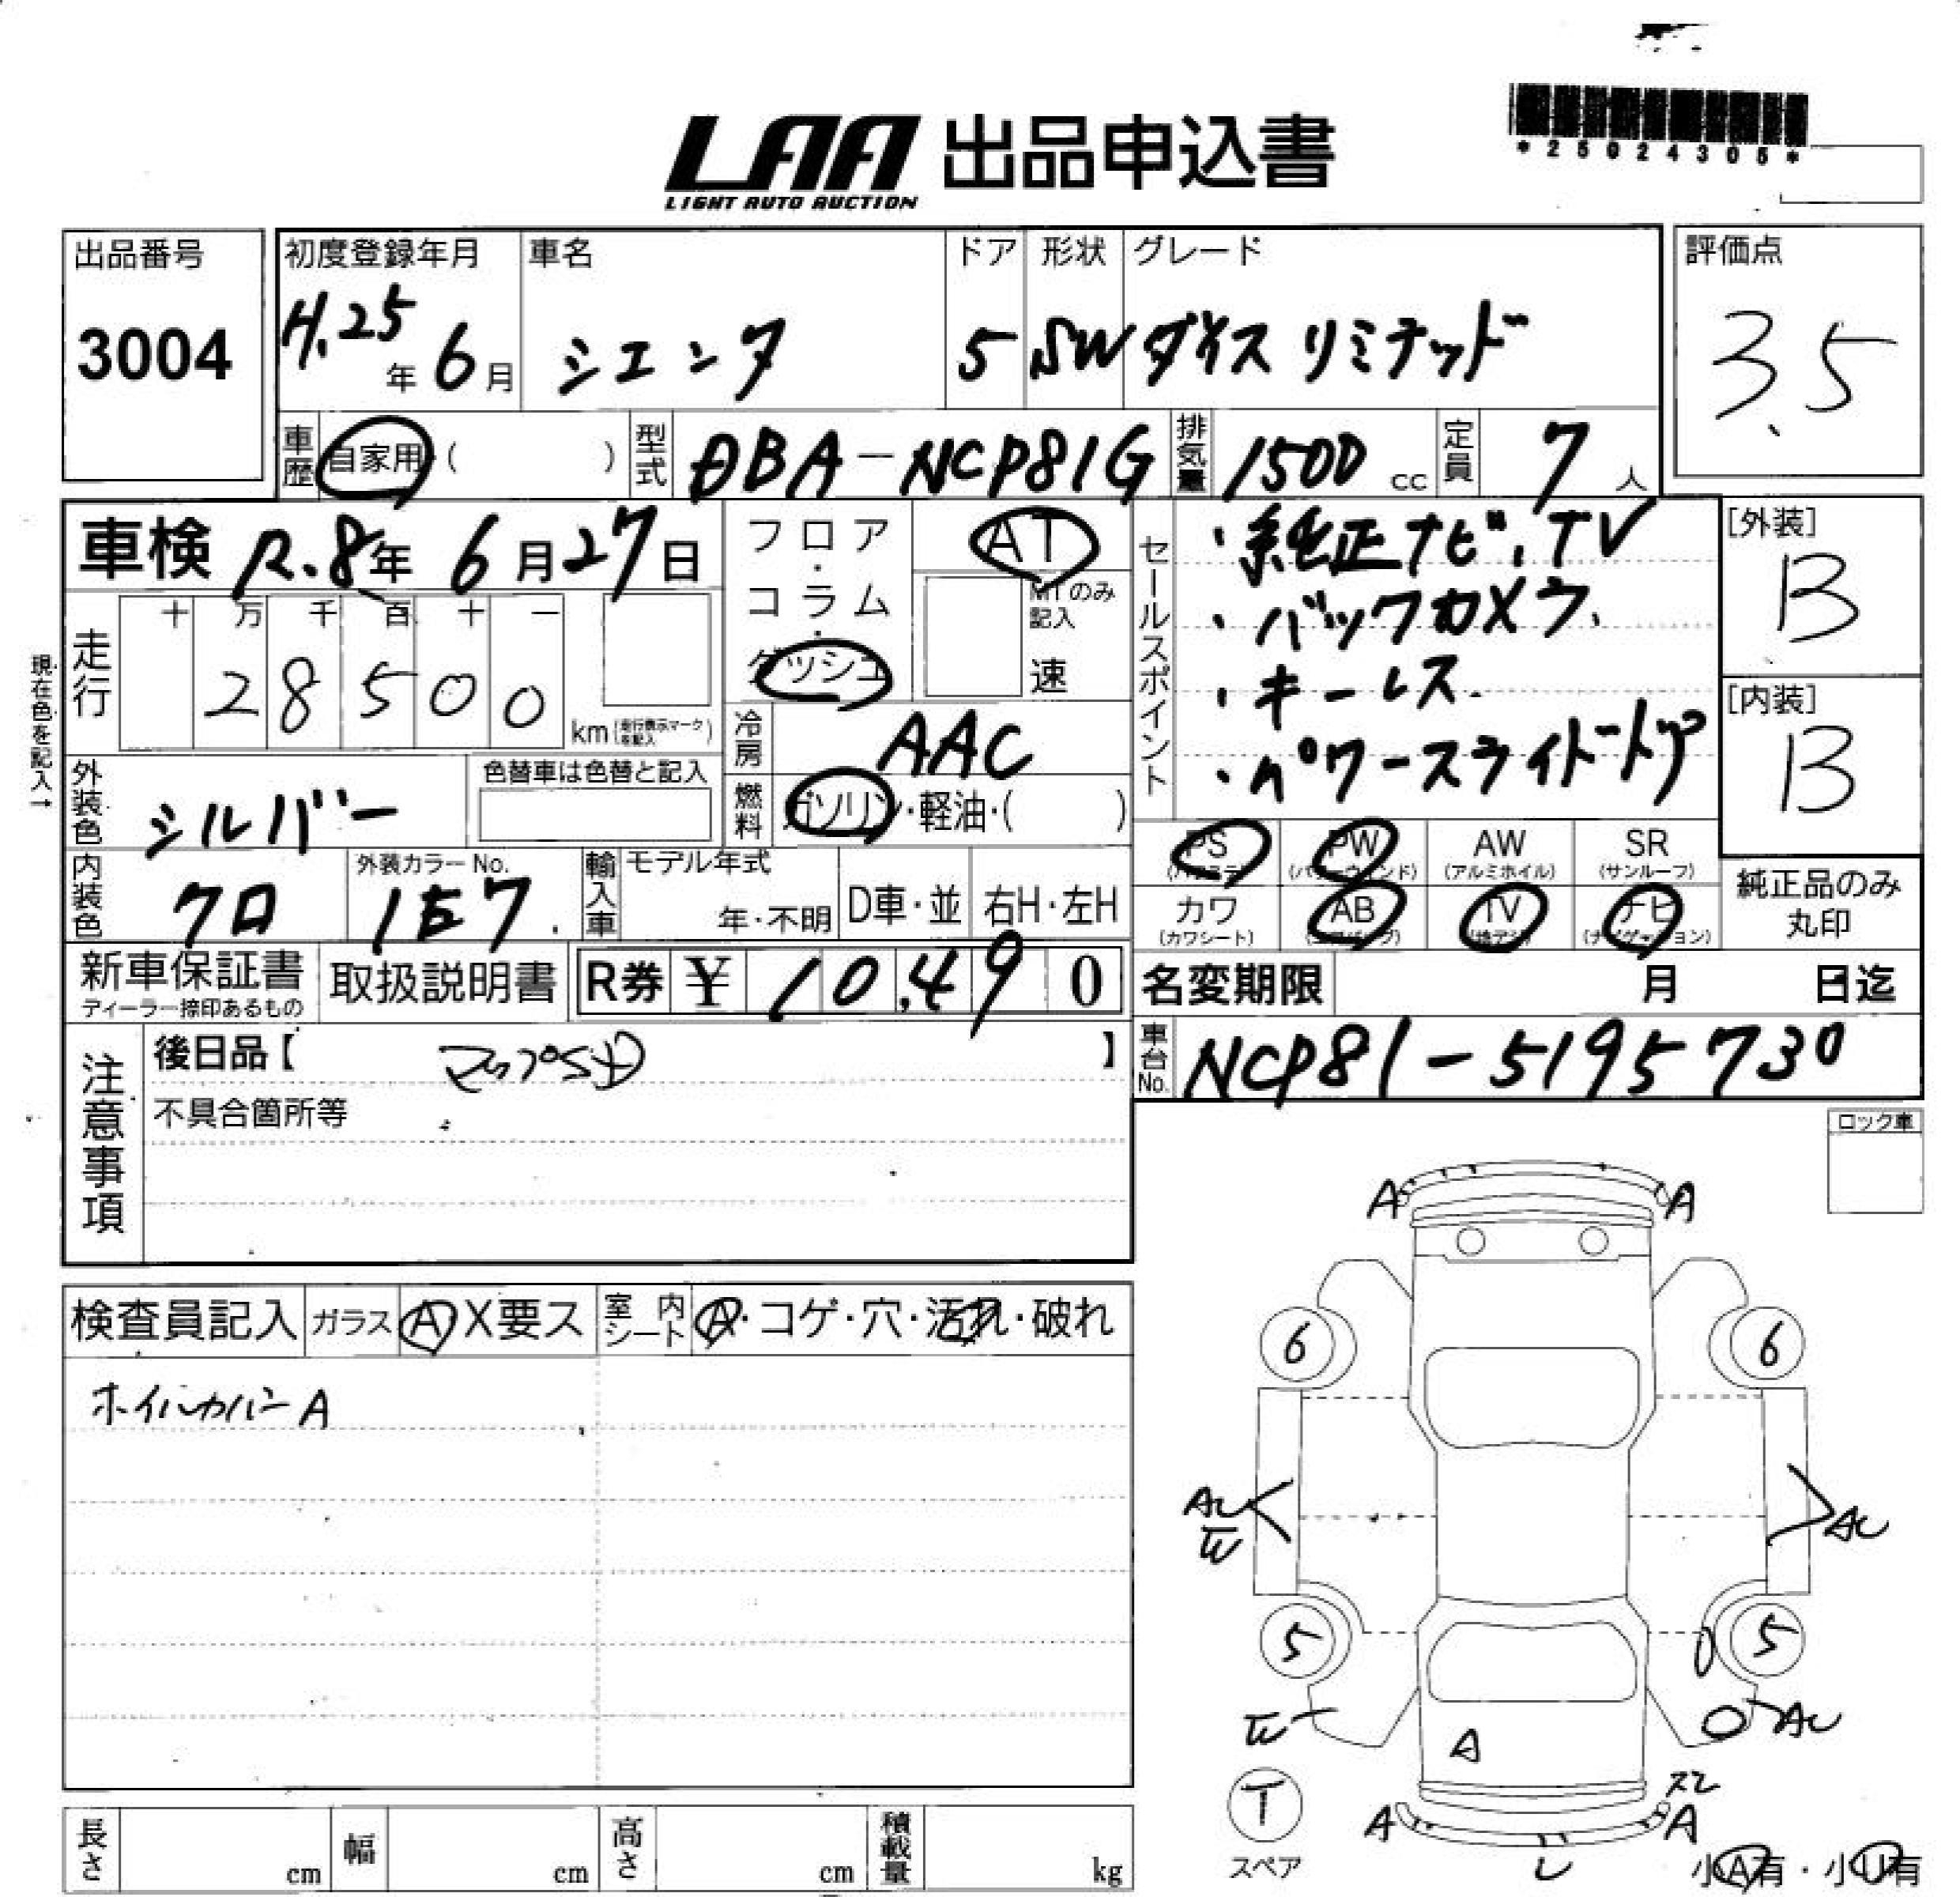 LAA 出品申込書
LIGHT AUTO AUCTION
*25024305*
出品番号
3004
初度登録年月
H.25年 6月
車名
シエンタ
ドア
5
形状
SW
グレード
ダイス リミテッド
評価点
3.5
車歴 自家用・( )
型式 DBA-NCP81G
排気量 1500 cc
定員 7人
車検 R.8年 6月27日
走行
十 万 千 百 十 一
2 8 5 0 0 km
(走行表示マークを記入)
現在色を記入→
フロア・コラム・ダッシュ
AT
MTのみ記入
速
冷房 AAC
燃料 ガソリン・軽油・( )
セールスポイント
・純正ナビ、TV
・バックカメラ.
・キーレス.
・パワースライドドア
[外装]
B
[内装]
B
外装色 シルバー
色替車は色替と記入
内装色 クロ
外装カラーNo.
1E7.
輸入車
モデル年式
年・不明
D車・並
右H・左H
PS (パワステ)
PW (パワーウィンド)
AW (アルミホイル)
SR (サンルーフ)
カワ (カワシート)
AB (エアバッグ)
TV (地デジ)
ナビ (ナビゲーション)
純正品のみ
丸印
新車保証書
ディーラー捺印あるもの
取扱説明書
R券 ¥ 10,490
名変期限 月 日迄
車台No. NCP81-5195730
注意事項
後日品【 マップSD 】
不具合箇所等
ロック車
検査員記入
ガラス A X要ス
室内シート A・コゲ・穴・汚れ・破れ
ホイルカバー A
A A
6 6
AU AU
E
5 5
E AU
A
T
スペア
スレ
A A
レ
小A有・小U有
長さ cm
幅 cm
高さ cm
積載量 kg